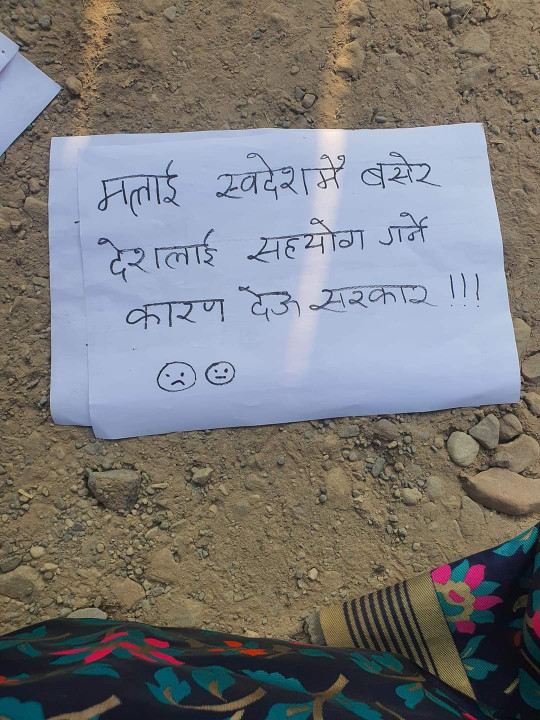 मलाई स्वदेशमै बसेर
देशलाई सहयोग गर्ने
कारण देऊ सरकार !!!